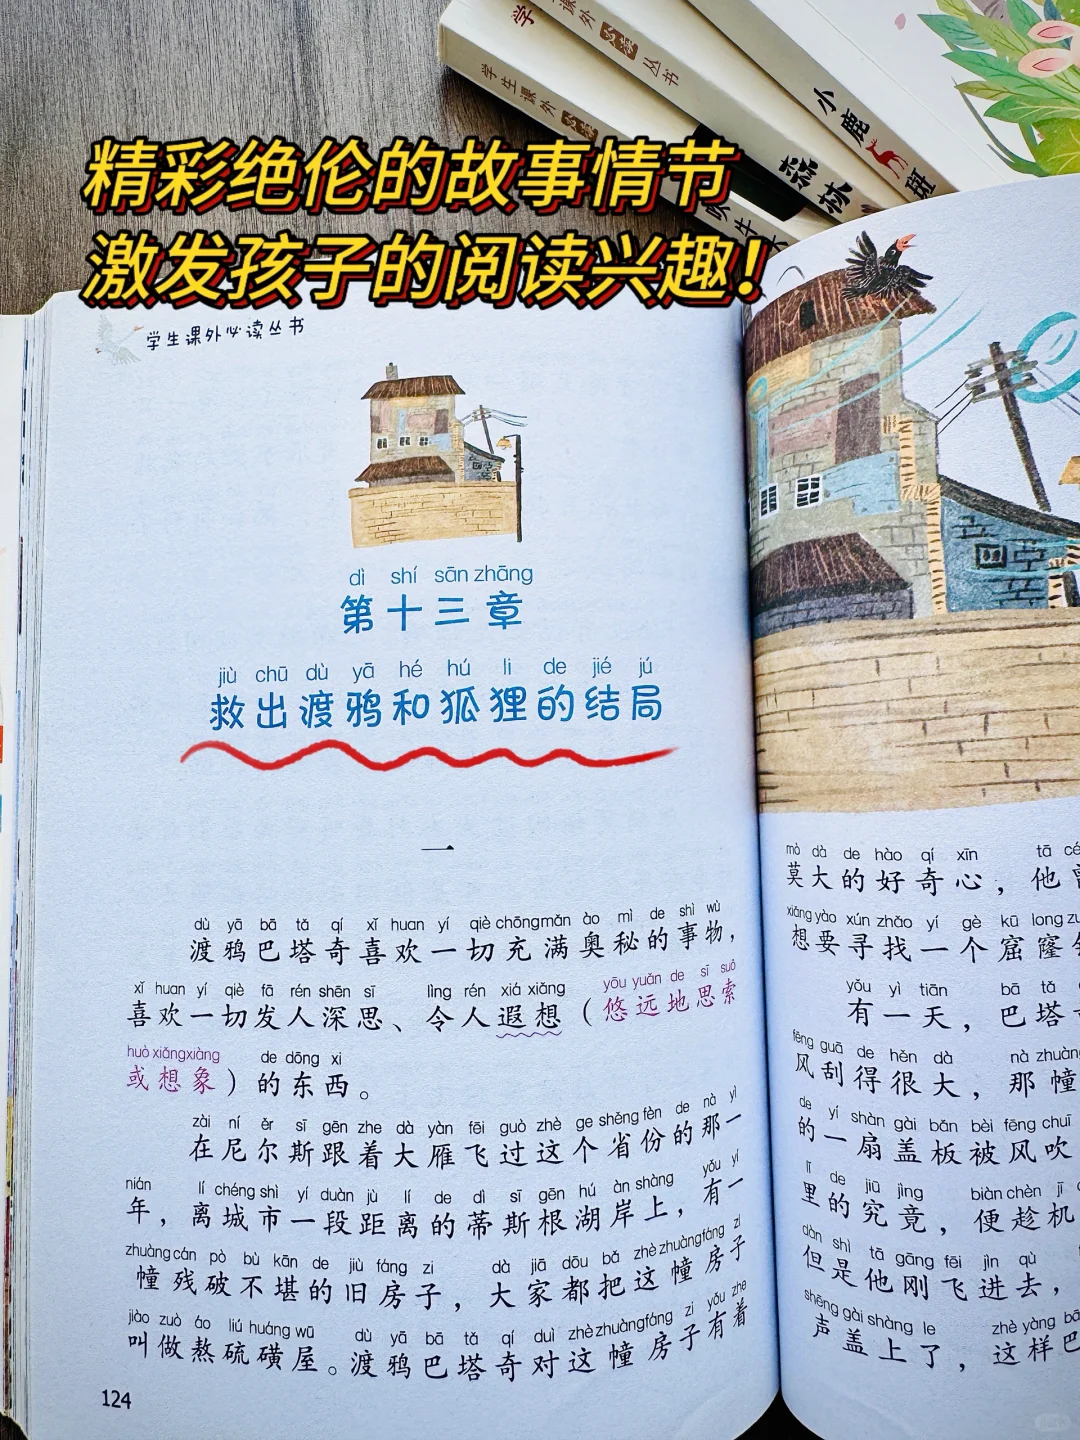 学
课外必读丛书
学生课外必读
小鹿斑
森林
吹牛大
精彩绝伦的故事情节
激发孩子的阅读兴趣!
学生课外必读丛书
dì shí sān zhāng
第十三章
jiù chū dù yā hé hú li de jié jú
救出渡鸦和狐狸的结局
一
dù yā bā tǎ qí xǐ huan yí qiè chōng mǎn ào mì de shì wù
渡鸦巴塔奇喜欢一切充满奥秘的事物，
xǐ huan yí qiè fā rén shēn sī lìng rén xiá xiǎng yōu yuǎn de sī suǒ
喜欢一切发人深思、令人遐想（悠远地思索
huò xiǎng xiàng de dōng xi
或想象）的东西。
zài ní ěr sī gēn zhe dà yàn fēi guò zhè ge shěng fèn de nà yì
在尼尔斯跟着大雁飞过这个省份的那一
nián lí chéng shì yí duàn jù lí de dì sī gēn hú àn shàng yǒu yí
年，离城市一段距离的蒂斯根湖岸上，有一
zhuàng cán pò bù kān de jiù fáng zi dà jiā dōu bǎ zhè zhuàng fáng zi
幢残破不堪的旧房子，大家都把这幢房子
jiào zuò áo liú huáng wū dù yā bā tǎ qí duì zhè zhuàng fáng zi yǒu zhe
叫做熬硫磺屋。渡鸦巴塔奇对这幢房子有着
124
mò dà de hào qí xīn tā cé
莫大的好奇心，他曾
xiǎng yào xún zhǎo yí gè kū long
想要寻找一个窟窿
yǒu yì tiān bā tǎ
有一天，巴塔
fēng guā de hěn dà nà zhuàng
风刮得很大，那幢
de yí shàn gài bǎn bèi fēng chuī
的一扇盖板被风吹
lǐ de jiū jìng biàn chèn jī
里的究竟，便趁机
dàn shì tā gāng fēi jìn qù
但是他刚飞进去，
shēng gài shàng le zhè yàng bā
声盖上了，这样巴